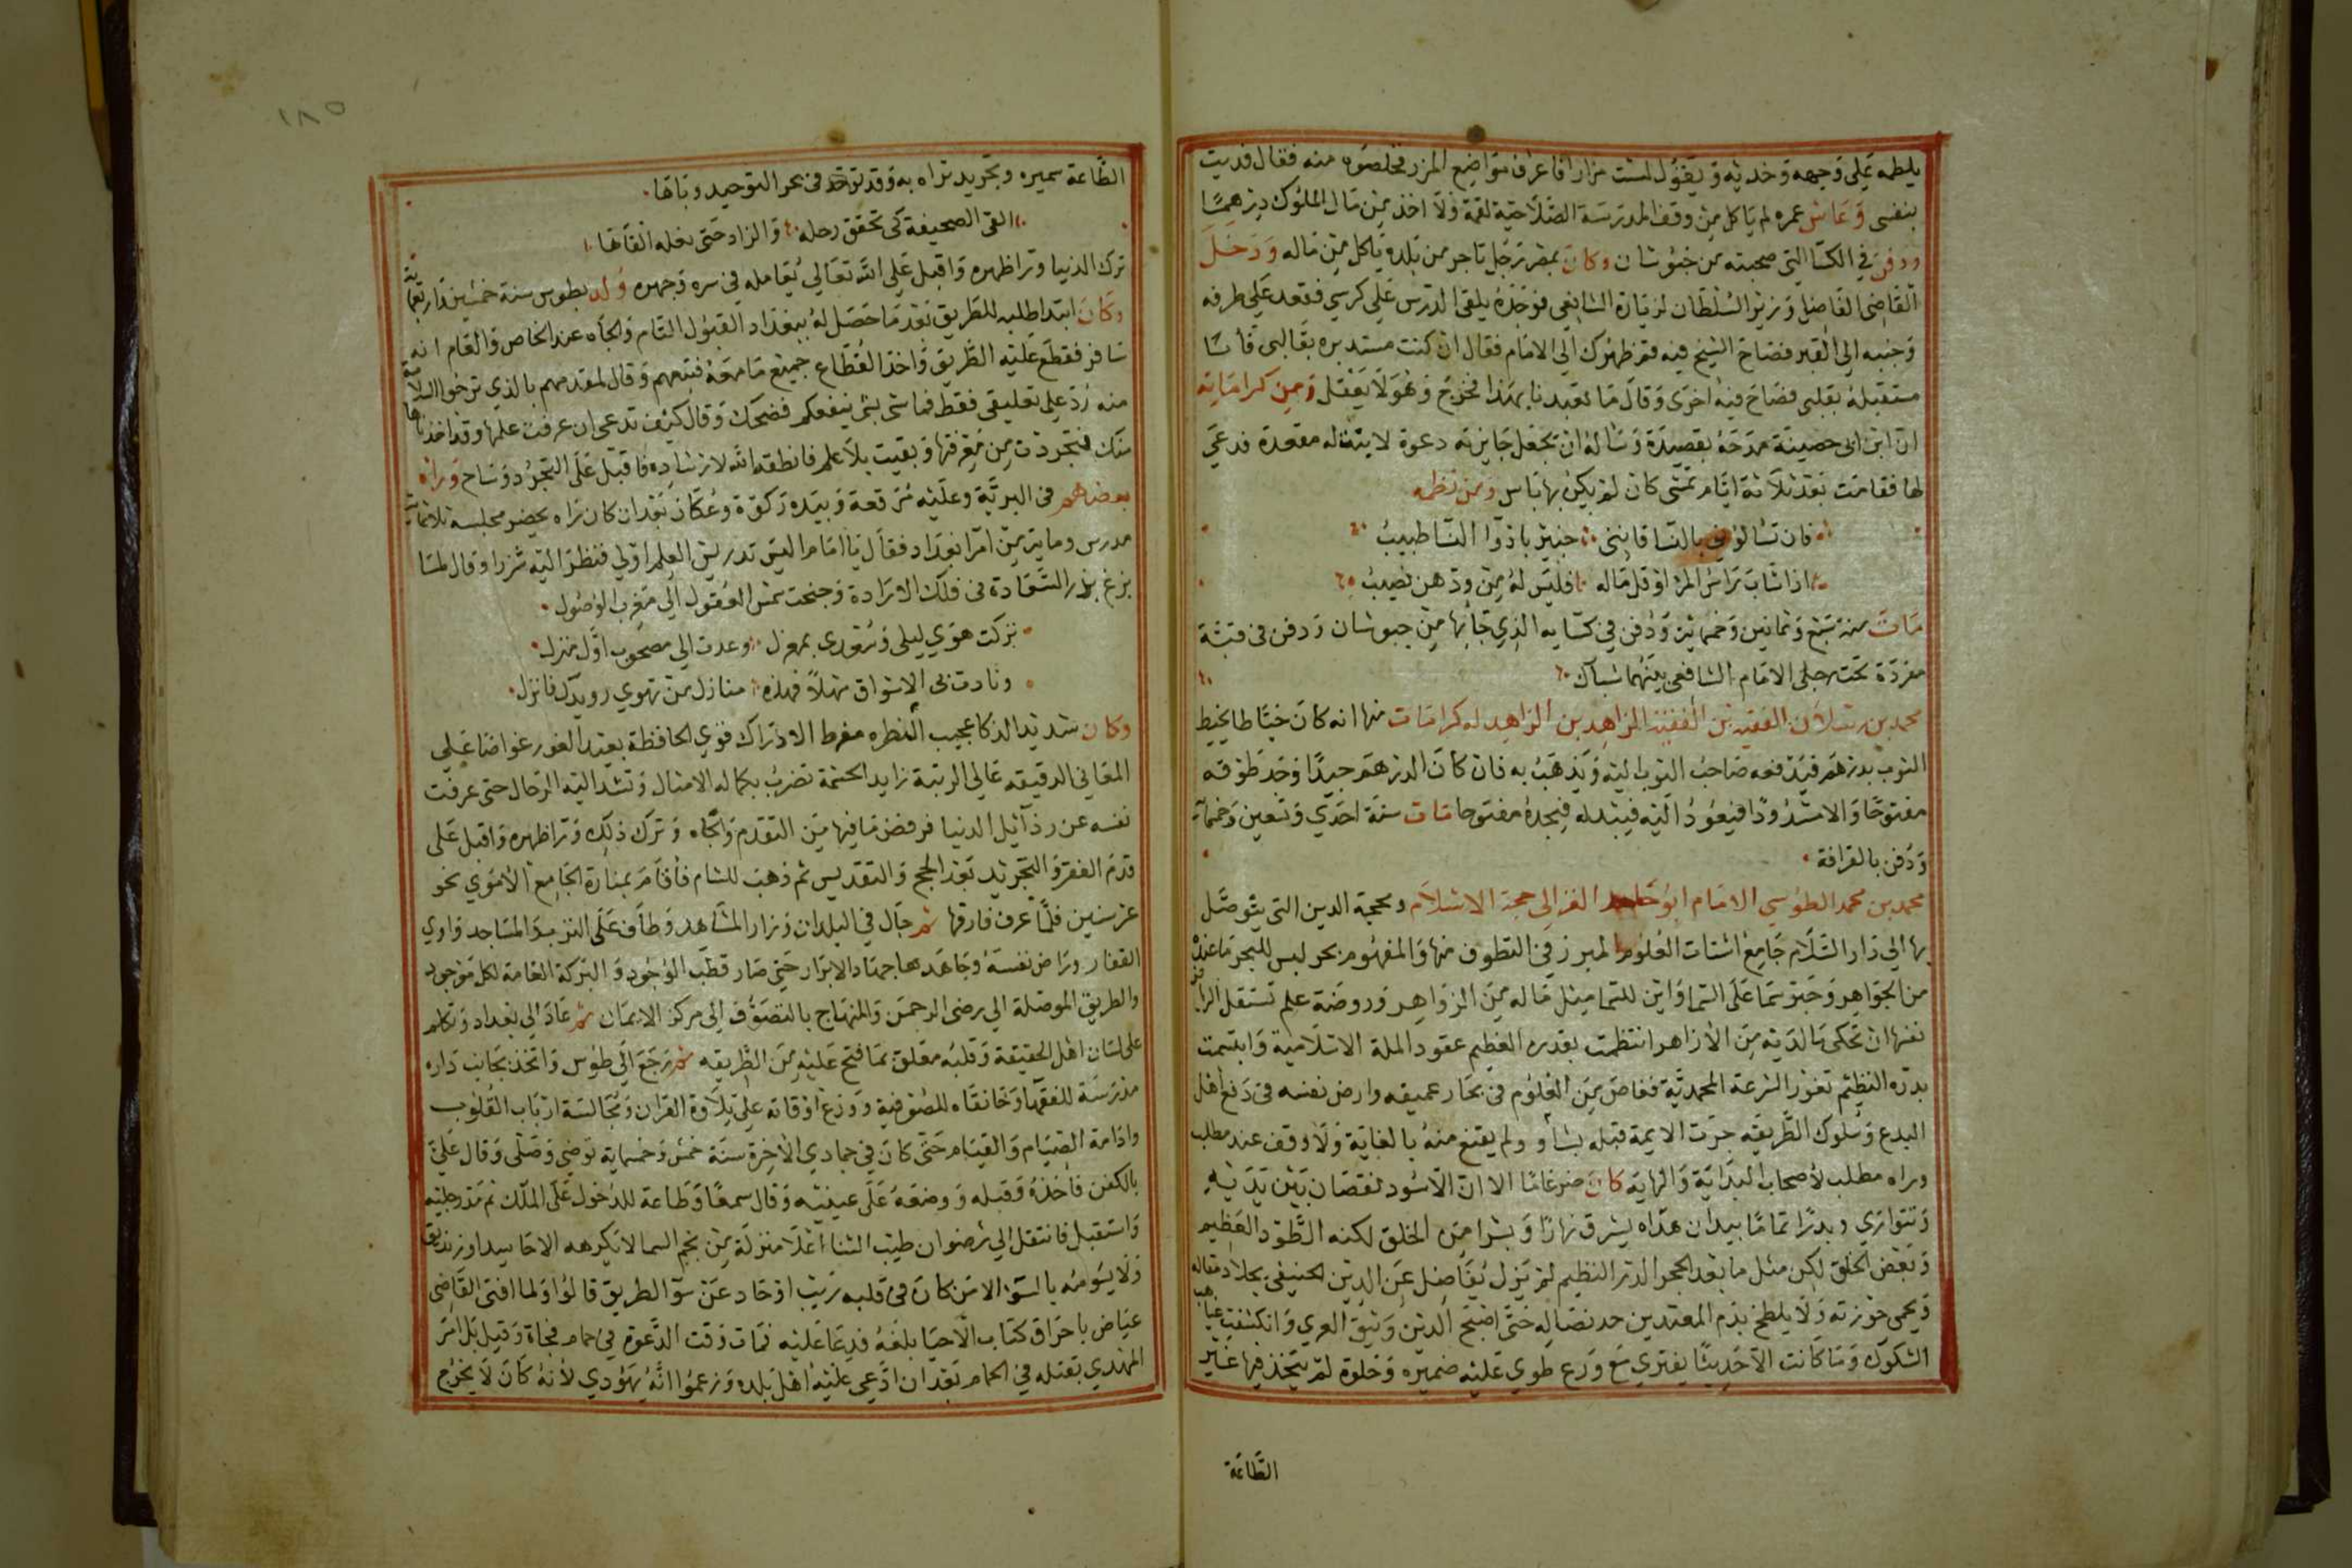 يلطمه علي وجهه وخديه ويقول لست مزارا فاعرف مواضع المزر فخلصوه منه فقال فديت
بنفسى وعاش عمره لم ياكل من وقف المدرسة الصلاحية لقمة ولا اخذ من مال الملوك درهما
ودفن في الكسا التي صحبته من خبوشان وكان بمصر رجل تاجر من بلده ياكل من ماله ودخل
القاضى الفاضل وزير السلطان لزيارة الشافعي فوجده يلقى الدرس علي كرسي فقعد علي طرفه
وجنبه الي القبر فصاح الشيخ فيه قم ظهرك الي الامام فقال ان كنت مستدبره بقالبى فانا
مستقبله بقلبى فصاح فيه اخرى وقال ما تعبدنا بهذا فخرج وهو لا يعقل ومن كراماته
ان ابن ابى حصينة مدحه بقصيدة وساله ان تجعل جايزته دعوة لابنة له مقعدة فدعي
لها فقامت بعد ثلاثة ايام تمشى كان لم يكن بها باس ومن نظمه
فان تسالونى بالنسا فاننى خبير بادوا النسا طبيب
اذا شاب راس المرء او قل ماله فليس له من ودهن نصيب
مات سنة سبع وثمانين وخمسماية ودفن في كسايه الذي جا بها من خبوشان ودفن فى قبة
مفردة تحت رجلى الامام الشافعى بينهما شباك
محمد بن رسلان الفقيه بن الفقيه الزاهد بن الزاهد له كرامات منها انه كان خياطا يخيط
الثوب بدرهم فيدفعه صاحب الثوب اليه ويذهب به فان كان الدرهم جيدا وجد طوقه
مفتوحا والا مسدودا فيعود اليه فيبدله فيجده مفتوحا مات سنة احدي وتسعين وخمسماية
ودفن بالقرافة
محمد بن محمد الطوسي الامام ابو حامد الغزالي حجة الاسلام ومحجة الدين التى يتوصل
بها الي دار السلام جامع اشتات العلوم المبرز فى المنطوق منها والمفهوم بحر ليس للبحر ما عنده
من الجواهر وحبر سما على السما واين للسما مثل ماله من الزواهر وروضة علم تستقل الرياض
نفسها ان تحكى ما لديه من الازاهر انتظمت بقدره العظيم عقود الملة الاسلامية وابتسمت
بدره النظيم ثغور الشرعة المحمدية فغاص من العلوم فى بحار عميقه وارض نفسه فى دفع اهل
البدع وسلوك الطريقه جرت الايمة قبله بشأو ولم يقنع منه بالغاية ولا وقف عند مطلب
وراه مطلب لاصحاب البداية والنهاية كان ضرغاما الا ان الاسود تنقصان بين يديه
وتتوارى وبدرا تماما بيدان هداه يشرق نهارا وبشرا من الخلق لكنه الطود العظيم
وبعض الخلق لكن مثل ما بعد الحجر الدر النظيم لم يزل يفاضل عن الدين الحنيفى بجلاد مقاله
ويحمى حوزته ولا يلطخ بدم المعتدين حد نصاله حتى اصبح الدين وثيق العرى وانكشفت غياهب
الشكوك وما كانت الا حديثا يفترى مع ورع طوي عليه ضميره وخلوة لم يتخذ فيها غير
الطاعة
١٨٥
الطاعة سميره وتجريد تراه به وقد توحد فى بحر التوحيد وباها
القى الصحيفة كى تخفق رحله والزاد حتى نعله القاها
ترك الدنيا ورا ظهره واقبل على الله تعالي يعامله فى سره وجهره ولد بطوس سنة خمسين واربعماية
وكان ابتدا طلبه للطريق بعد ما حصل له ببغداد القبول التام والجاه عند الخاص والعام انه
سافر فقطع عليه الطريق واخذ القطاع جميع ما معه فتبعهم وقال لمقدمهم بالذي ترجوا السلامة
منه رد على تعليقى فقط فما شى بشى ينفعكم فضحك وقال كيف تدعى ان عرفت علمها وقد اخذناها
منك فتجردت من معرفتها وبقيت بلا علم فانطقه الله لارشاده فاقبل على التجرد وساح وراه
بعضهم فى البرية وعليه مرقعة وبيده ركوة وعكاز بعد ان كان راه يحضر مجلسه ثلاثماية
مدرس وماية من امرا بغداد فقال يا امام اليس تدريس العلم اولي فنظر اليه شزرا وقال لما
بزغ بدر السعادة فى فلك الارادة وجنحت شمس العقول الي مغرب الوصول
تركت هوي ليلى وسعدى بمعزل وعدت الي مصحوب اول منزل
ونادت بى الاشواق مهلا فهذه منازل من تهوي رويدك فانزل
وكان شديد الذكا عجيب الفطره مفرط الادراك قوي الحافظة بعيد الغور غواصا علي
المعاني الدقيقه عالي الرتبة زايد الحشمة تضرب بكماله الامثال وتشد اليه الرحال حتى عزفت
نفسه عن رذايل الدنيا فرفض ما فيها من التقدم والجاه وترك ذلك ورا ظهره واقبل على
قدم الفقر والتجريد بعد الحج والتقديس ثم ذهب للشام فأقام بمنارة الجامع الاموي نحو
عشر سنين فلما عرف فارقها ثم جال في البلدان وزار المشاهد وطاف على الترب والمساجد واوي
القفار وراض نفسه وجاهدها جهاد الابرار حتى صار قطب الوجود والبركة العامة لكل موجود
والطريق الموصلة الي رضى الرحمن والمنهاج بالتصوف الى مركز الايمان ثم عاد الي بغداد وتكلم
على لسان اهل الحقيقة وقلبه معلق بما فتح عليه من الطريقه ثم رجع الي طوس واتخذ بجانب داره
مدرسة للفقها وخانقاه للصوفية ووزع اوقاته على تلاوة القران ومجالسة ارباب القلوب
وادامة الصيام والقيام حتى كان في جمادي الاخرة سنة خمس وخمسماية توضى وصلى وقال علي
بالكفن فاخذه وقبله ووضعه على عينيه وقال سمعا وطاعة للدخول على الملك ثم مد رجليه
واستقبل فانتقل الي رضوان طيب الثنا اعلا منزلة من نجم السما لا يكرهه الا حاسد او زنديق
ولا يسومه بالسوء الا من كان فى قلبه ريب او حاد عن سوا الطريق قالوا ولما افتى القاضى
عياض باحراق كتاب الاحيا بلغه فدعا عليه فمات وقت الدعوة في حمام فجاة وقيل بل امر
المهدي بقتله في الحمام بعد ان ادعى عليه اهل بلده وزعموا انه يهودي لأنه كان لا يخرج